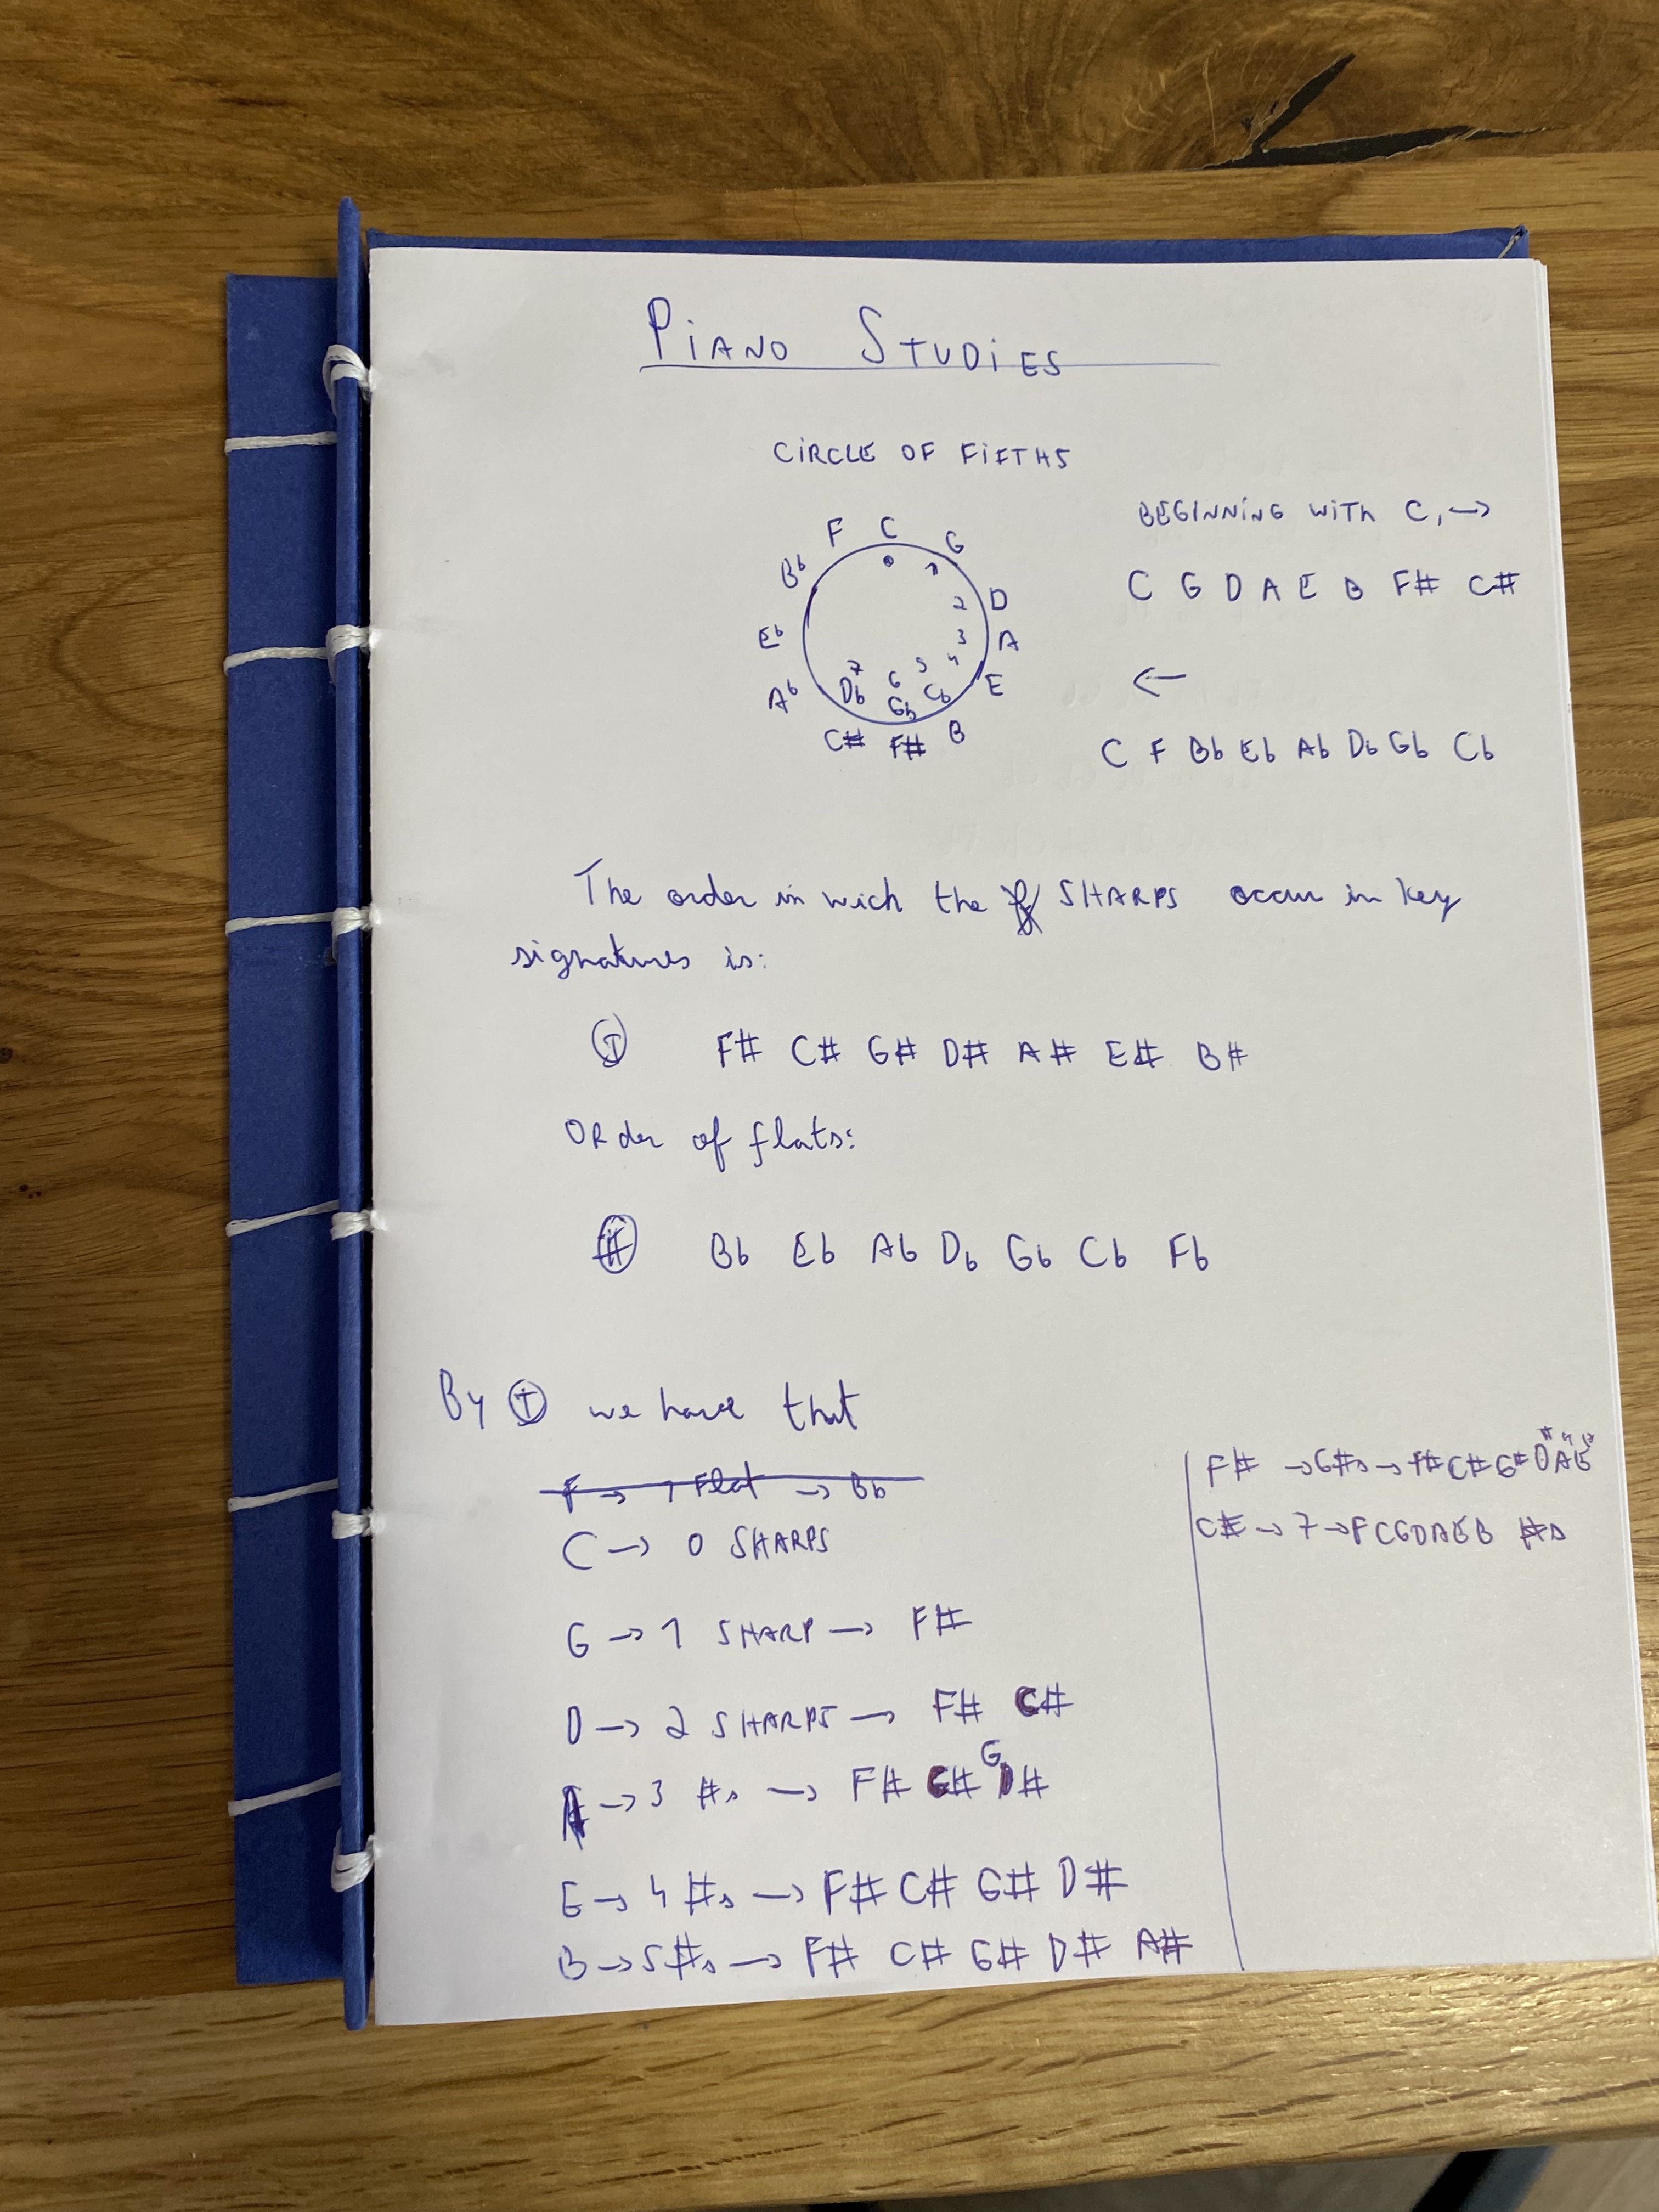 PIANO STUDIES
CIRCLE OF FIFTHS
F C G
Bb D
Eb A
Ab E
C# F# B
0 1 2 3 4 5 6 7
Db Gb Cb
BEGINNING WITH C, →
C G D A E B F# C#
←
C F Bb Eb Ab Db Gb Cb
The order in wich the SHARPS occur in key
signatures is:
I F# C# G# D# A# E# B#
ORder of flats:
II Bb Eb Ab Db Gb Cb Fb
By I we have that
F → 1 Flat → Bb
C → 0 SHARPS
G → 1 SHARP → F#
D → 2 SHARPS → F# C#
A → 3 #s → F# C# G#
E → 4 #s → F# C# G# D#
B → 5 #s → F# C# G# D# A#
F# → 6#s → F# C# G# D# A# E#
C# → 7 → F C G D A E B #s